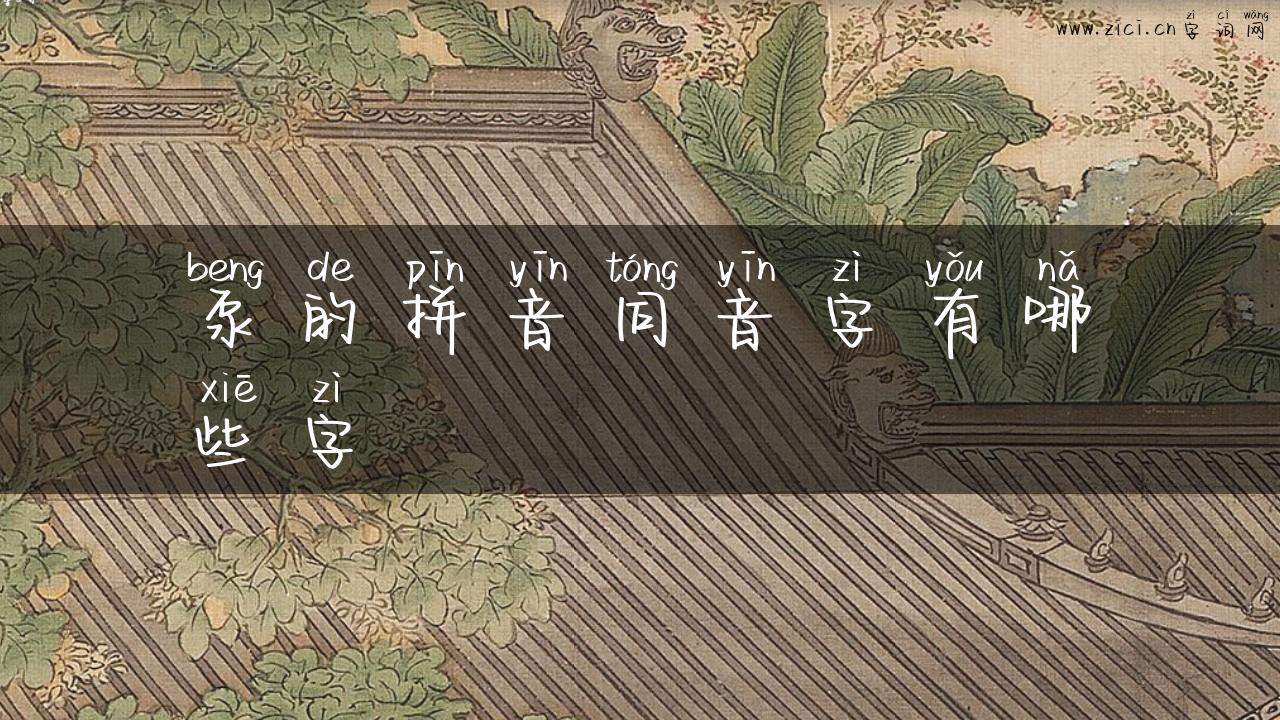 zì cí wǎng
www.zici.cn 字词网
beng de pīn yīn tóng yīn zì yǒu nǎ
泵的拼音同音字有哪
xiē zì
些字